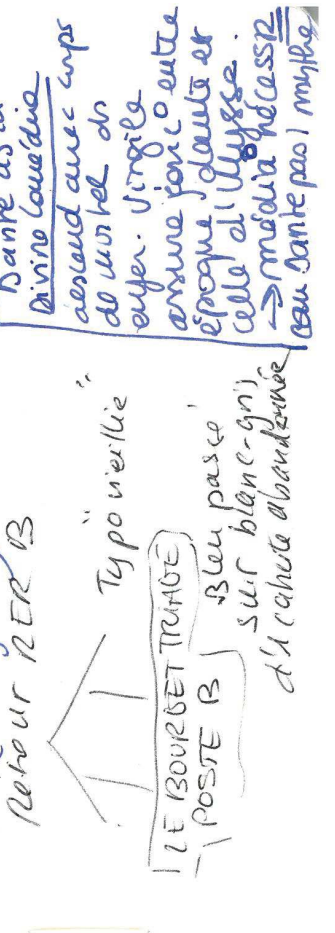 Retour RER B
Typo vieillie
LE BOURGET TRIAGE
POSTE B
Bleu passé
sur blanc-gris
d'1 cahute abandonnée
Dante ds la
Divine Comédie
descend avec corps
de mortel ds
enfer. Virgile
assure
entre
époque
dante et
celle d'Ulysse.
→ média nécessR
car Dante pas 1 mythe